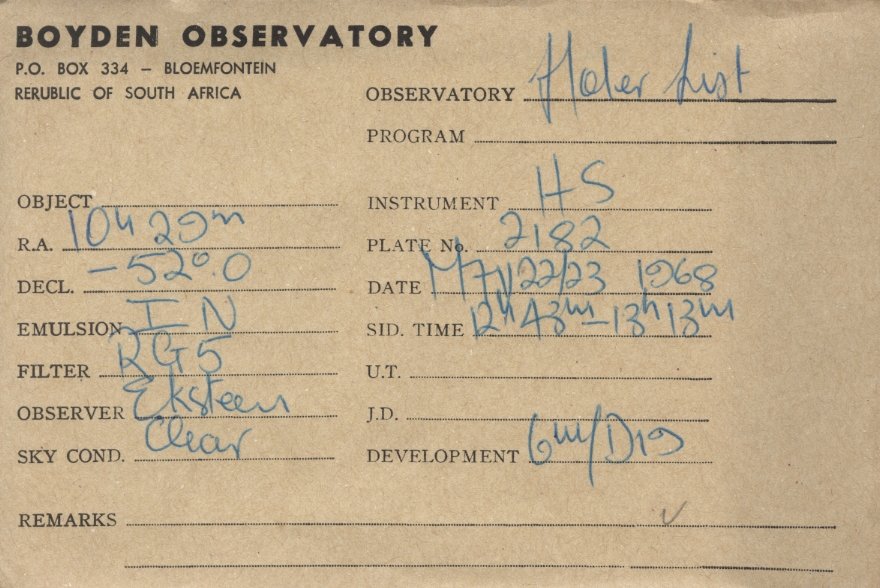 BOYDEN OBSERVATORY
P.O. BOX 334 – BLOEMFONTEIN
RERUBLIC OF SOUTH AFRICA
OBSERVATORY Hoher List
PROGRAM
OBJECT
R.A. 10h 29m
DECL. –52°.0
EMULSION I N
FILTER RG5
OBSERVER Eksteen
SKY COND. Clear
INSTRUMENT HS
PLATE No. 2182
DATE May 22/23 1968
SID. TIME 12h 43m – 13h 13m
U.T.
J.D.
DEVELOPMENT 6m/D19
REMARKS